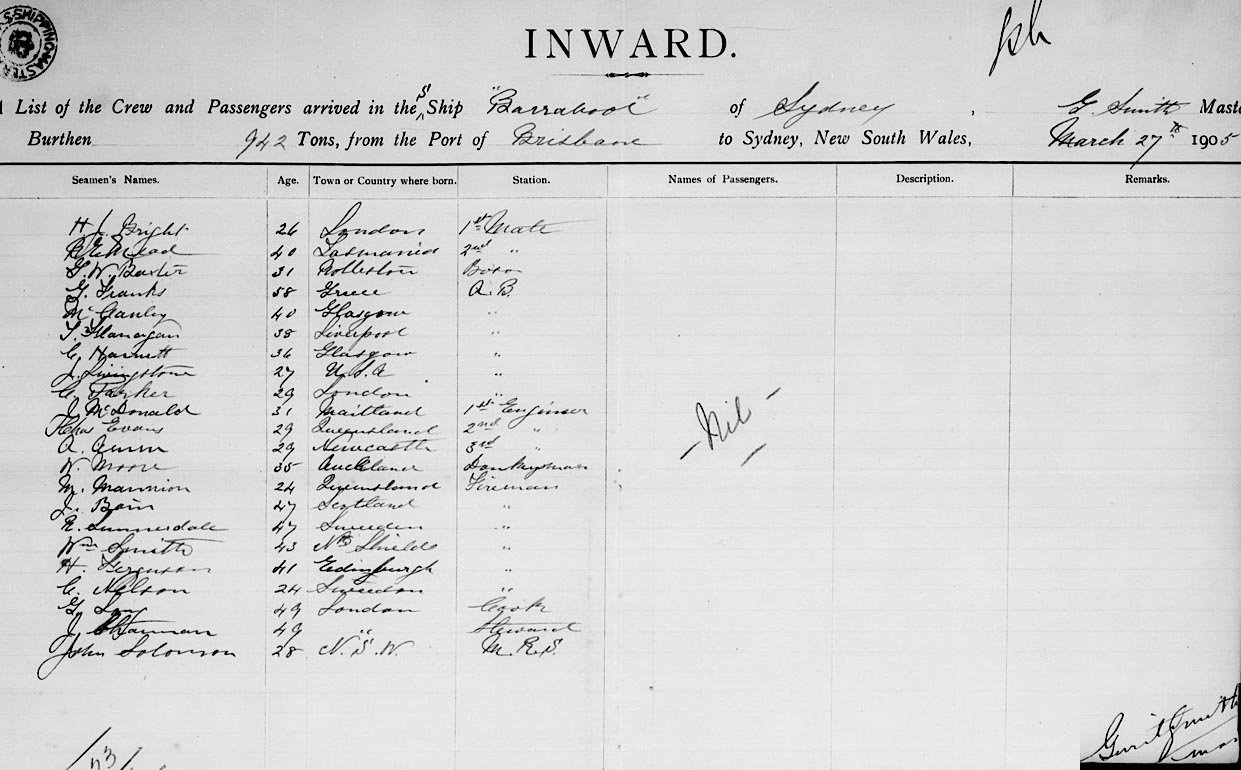 SHIPPING MASTER
INWARD.
List of the Crew and Passengers arrived in the S' Ship "Barrabool" of Sydney, G. Smith Maste
Burthen 942 Tons, from the Port of Brisbane to Sydney, New South Wales, March 27th 1905
Seamen's Names. Age. Town or Country where born. Station. Names of Passengers. Description. Remarks.
H J Bright 26 London 1st Mate
40 Tasmania 2nd "
G. W. Baxter 31 Bosn
G. Franks 58 Greece A. B.
McGanley 40 Glasgow "
T. Flanagan 38 Liverpool "
C. Harnett 36 Glasgow "
J. Livingstone 27 U. S. A "
C. Parker 29 London "
J. McDonald 31 Maitland 1st Engineer
Thos Evans 29 Queensland 2nd "
A. Quinn 29 Newcastle 3rd "
W. Moore 35 Auckland Donkeyman
M. Mannion 24 Queensland Fireman
J. Bain 27 Scotland "
R. Summerdale 47 Sweeden "
Wm Smith 43 Nth Shields "
H. Ferguson 41 Edinburgh "
C. Nilson 24 Sweedon "
G. Long 49 London Cook
J. Chapman 49 " Steward
John Solomon 28 N. S. W. M. R. S.
- Nil -
Smith